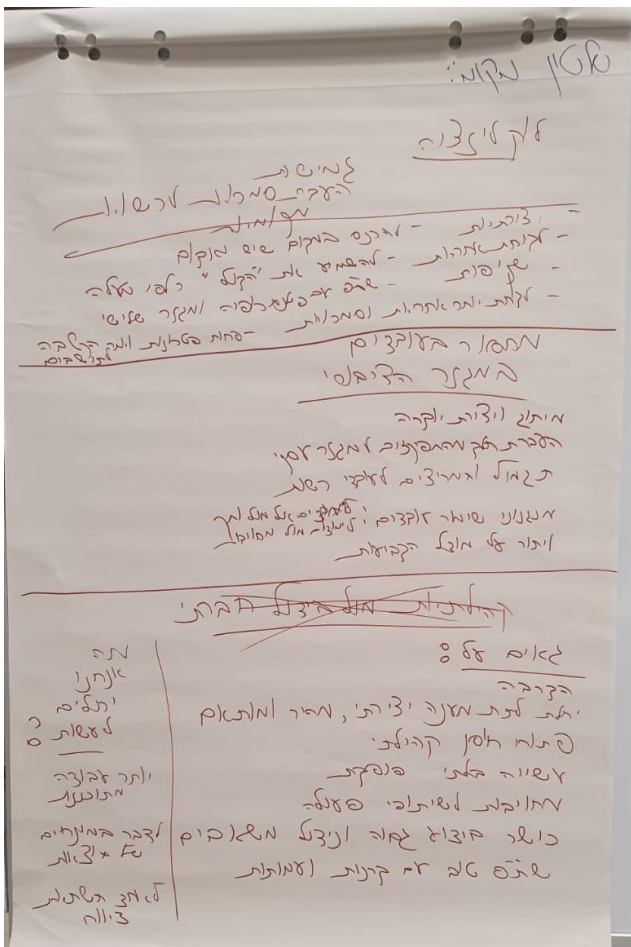 שלטון מקומי:
לוקליזציה
גמישות
העברת סמכויות לרשויות
מקומיות
- יצירתיות - להיכנס במקום שיש ואקום
- לקיחת אחריות - להשמיע את "הקול" כלפי מעלה
- שקיפות - שת"פ עם פילנתרופיה ומגזר שלישי
- לקחת יותר אחריות וסמכויות - פחות פטרונות ויותר הקשבה
לתושבים
מחסור בעובדים
במגזר הציבורי
מיתוג ויצירת יוקרה
העברת חלק מהתפקידים למגזר עסקי
תגמול ותמריצים לעובדי רשות
מנגנוני שימור עובדים:
ויתור על מודל הקביעות
קהילתיות מול בידול חברתי
גאים על:
הקרבה
יכולת לתת מענה יצירתי, מהיר ומותאם
פיתוח חוסן קהילתי
עשייה בלתי פוסקת
מחויבות לשיתופי פעולה
כושר ביצוע גבוה וניצול משאבים
שת"פ טוב עם קרנות ועמותות
מה
אנחנו
יכולים
לעשות?
יותר עבודה
מתוכננת
לדבר במונחים
של תוצאות